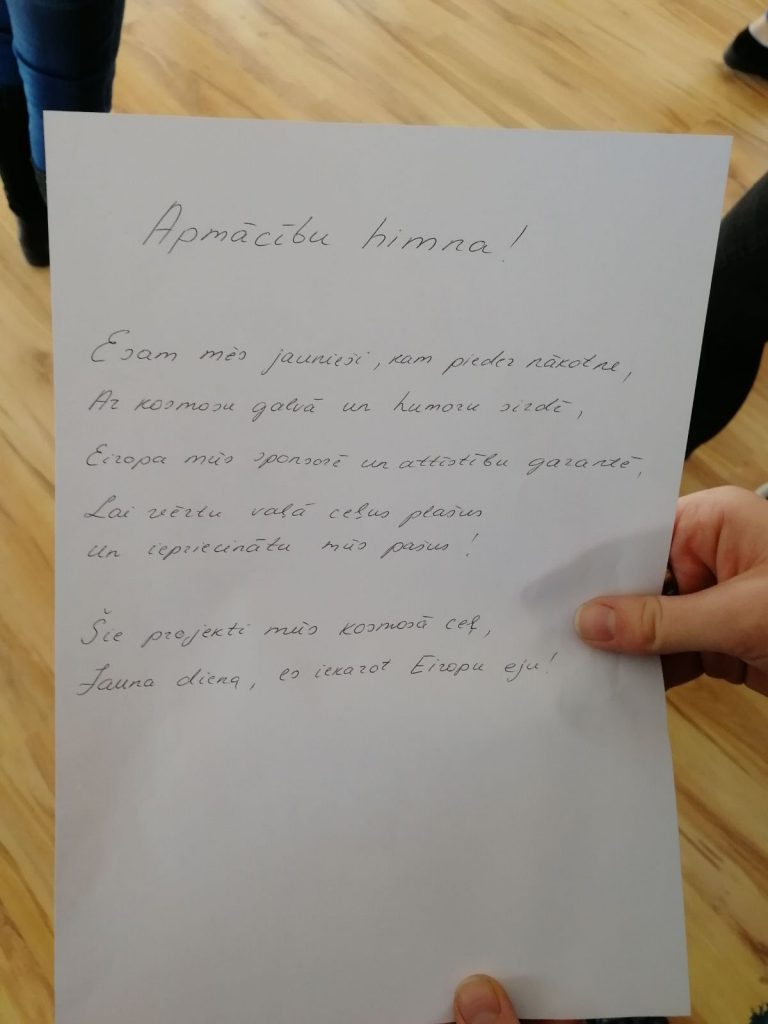 Apmācību himna!
Esam mēs jaunieši, kam pieder nākotne,
Ar kosmosu galvā un humoru sirdē,
Eiropa mūs sponsorē un attīstību garantē,
Lai vērtu vaļā ceļus plašus
Un iepriecinātu mūs pašus!
Šie projekti mūs kosmosā ceļ,
Jauna diena, es iekarot Eiropu eju!